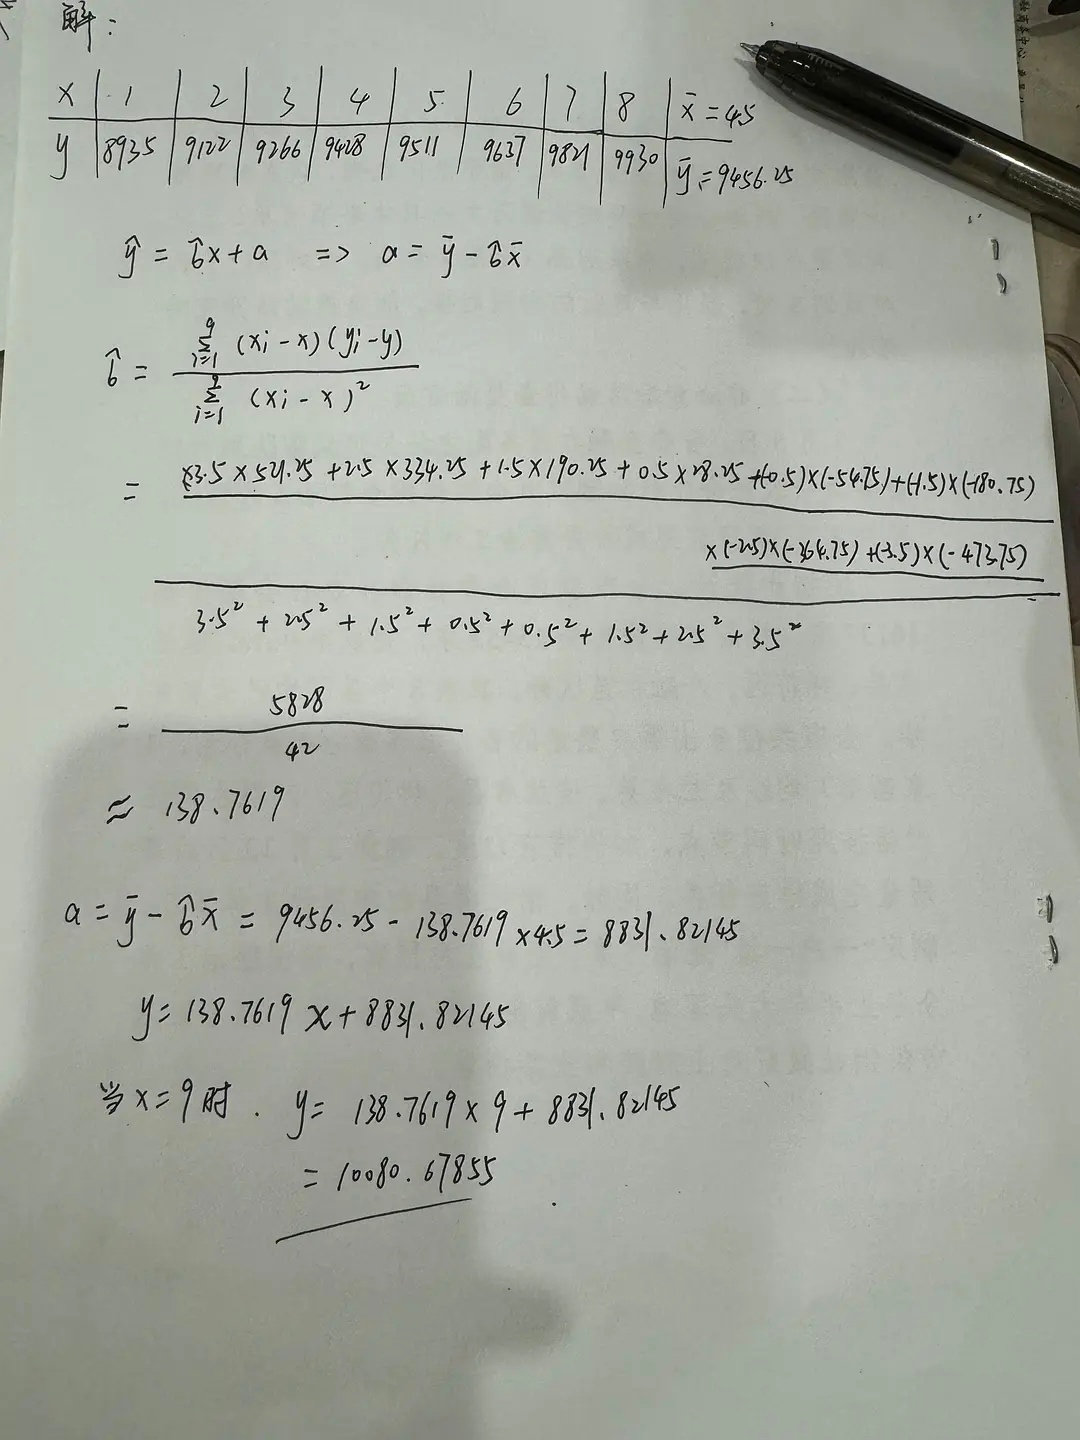 解：
x 1 2 3 4 5 6 7 8 x̄=4.5
y 8935 9122 9266 9428 9511 9637 9821 9930 ȳ=9456.25
ŷ = b̂x+a => a = ȳ - b̂x̄
b̂ = Σ(xi-x)(yi-y)
Σ(xi-x)²
= ×3.5×521.25+2.5×334.25+1.5×190.25+0.5×28.25+(-0.5)×(-54.75)+(-1.5)×(-180.75)
×(-2.5)×(-364.75)+(-3.5)×(-473.75)
3.5²+2.5²+1.5²+0.5²+0.5²+1.5²+2.5²+3.5²
= 5828
42
≈ 138.7619
a = ȳ - b̂x̄ = 9456.25 - 138.7619×4.5 = 8831.82145
y=138.7619x+8831.82145
当x=9时. y= 138.7619×9+8831.82145
=10080.67855